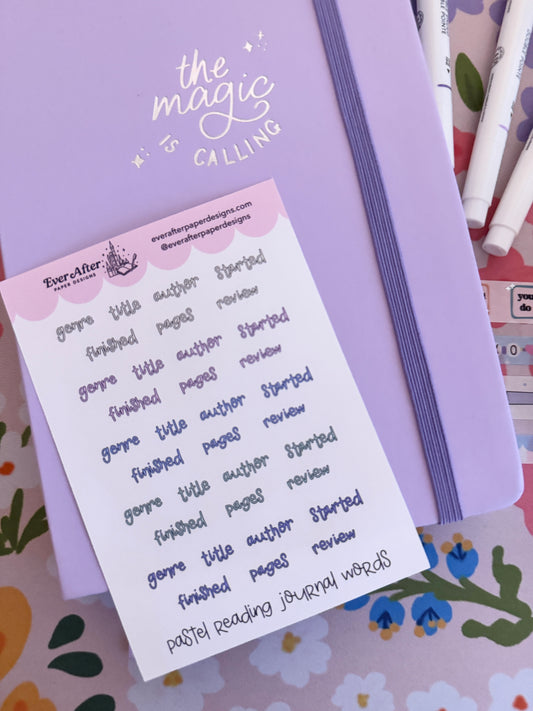 the
magic
IS CALLING
EVER AFTER
PAPER DESIGNS
everafterpaperdesigns.com
@everafterpaperdesigns
genre title author started
finished pages review
genre title author started
finished pages review
genre title author started
finished pages review
genre title author started
finished pages review
genre title author started
finished pages review
pastel reading journal words
you
do
0